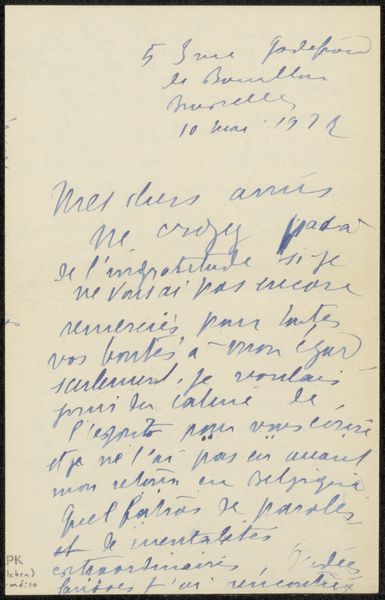 53 rue Godefroid
de Bouillon
Bruxelles
10 mai 1922
Mes chers amis
Ne croyez pas à
de l'ingratitude si je
ne vous ai pas encore
remerciés pour toutes
vos bontés à mon égard
seulement, je voulais
du calme de
l'esprit pour vous écrire
et je ne l'ai pas eu avant
mon retour en Belgique
Quel fatras de paroles
et de mentalités
extraordinaires, d'idées
j'ai rencontré
PK